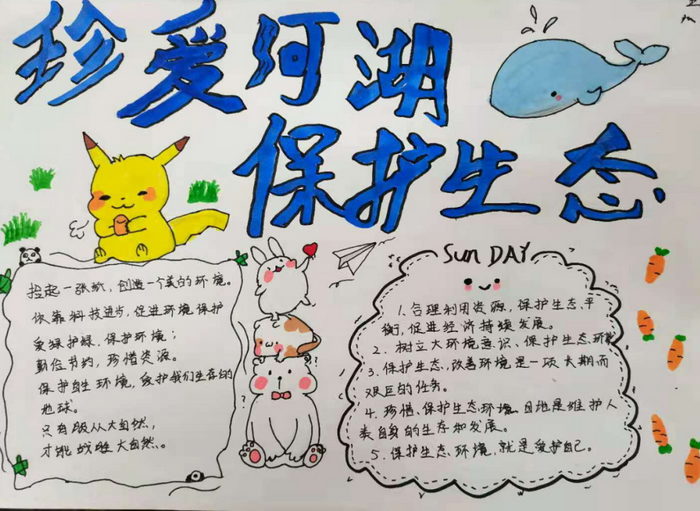 珍爱河湖
保护生态
捡起一张纸，创造一个美的环境。
依靠科技进步，促进环境保护
爱绿护绿，保护环境；
勤俭节约，珍惜资源。
保护自生环境，爱护我们生存的
地球。
只有服从大自然，
才能战胜大自然。
SUN DAY
1.合理利用资源，保护生态平
衡，促进经济持续发展。
2.树立大环境意识、保护生态环
3.保护生态，改善环境是一项长期而
艰巨的任务。
4.珍惜、保护生态环境、目地是维护人
类自身的生存和发展。
5.保护生态、环境，就是爱护自己。